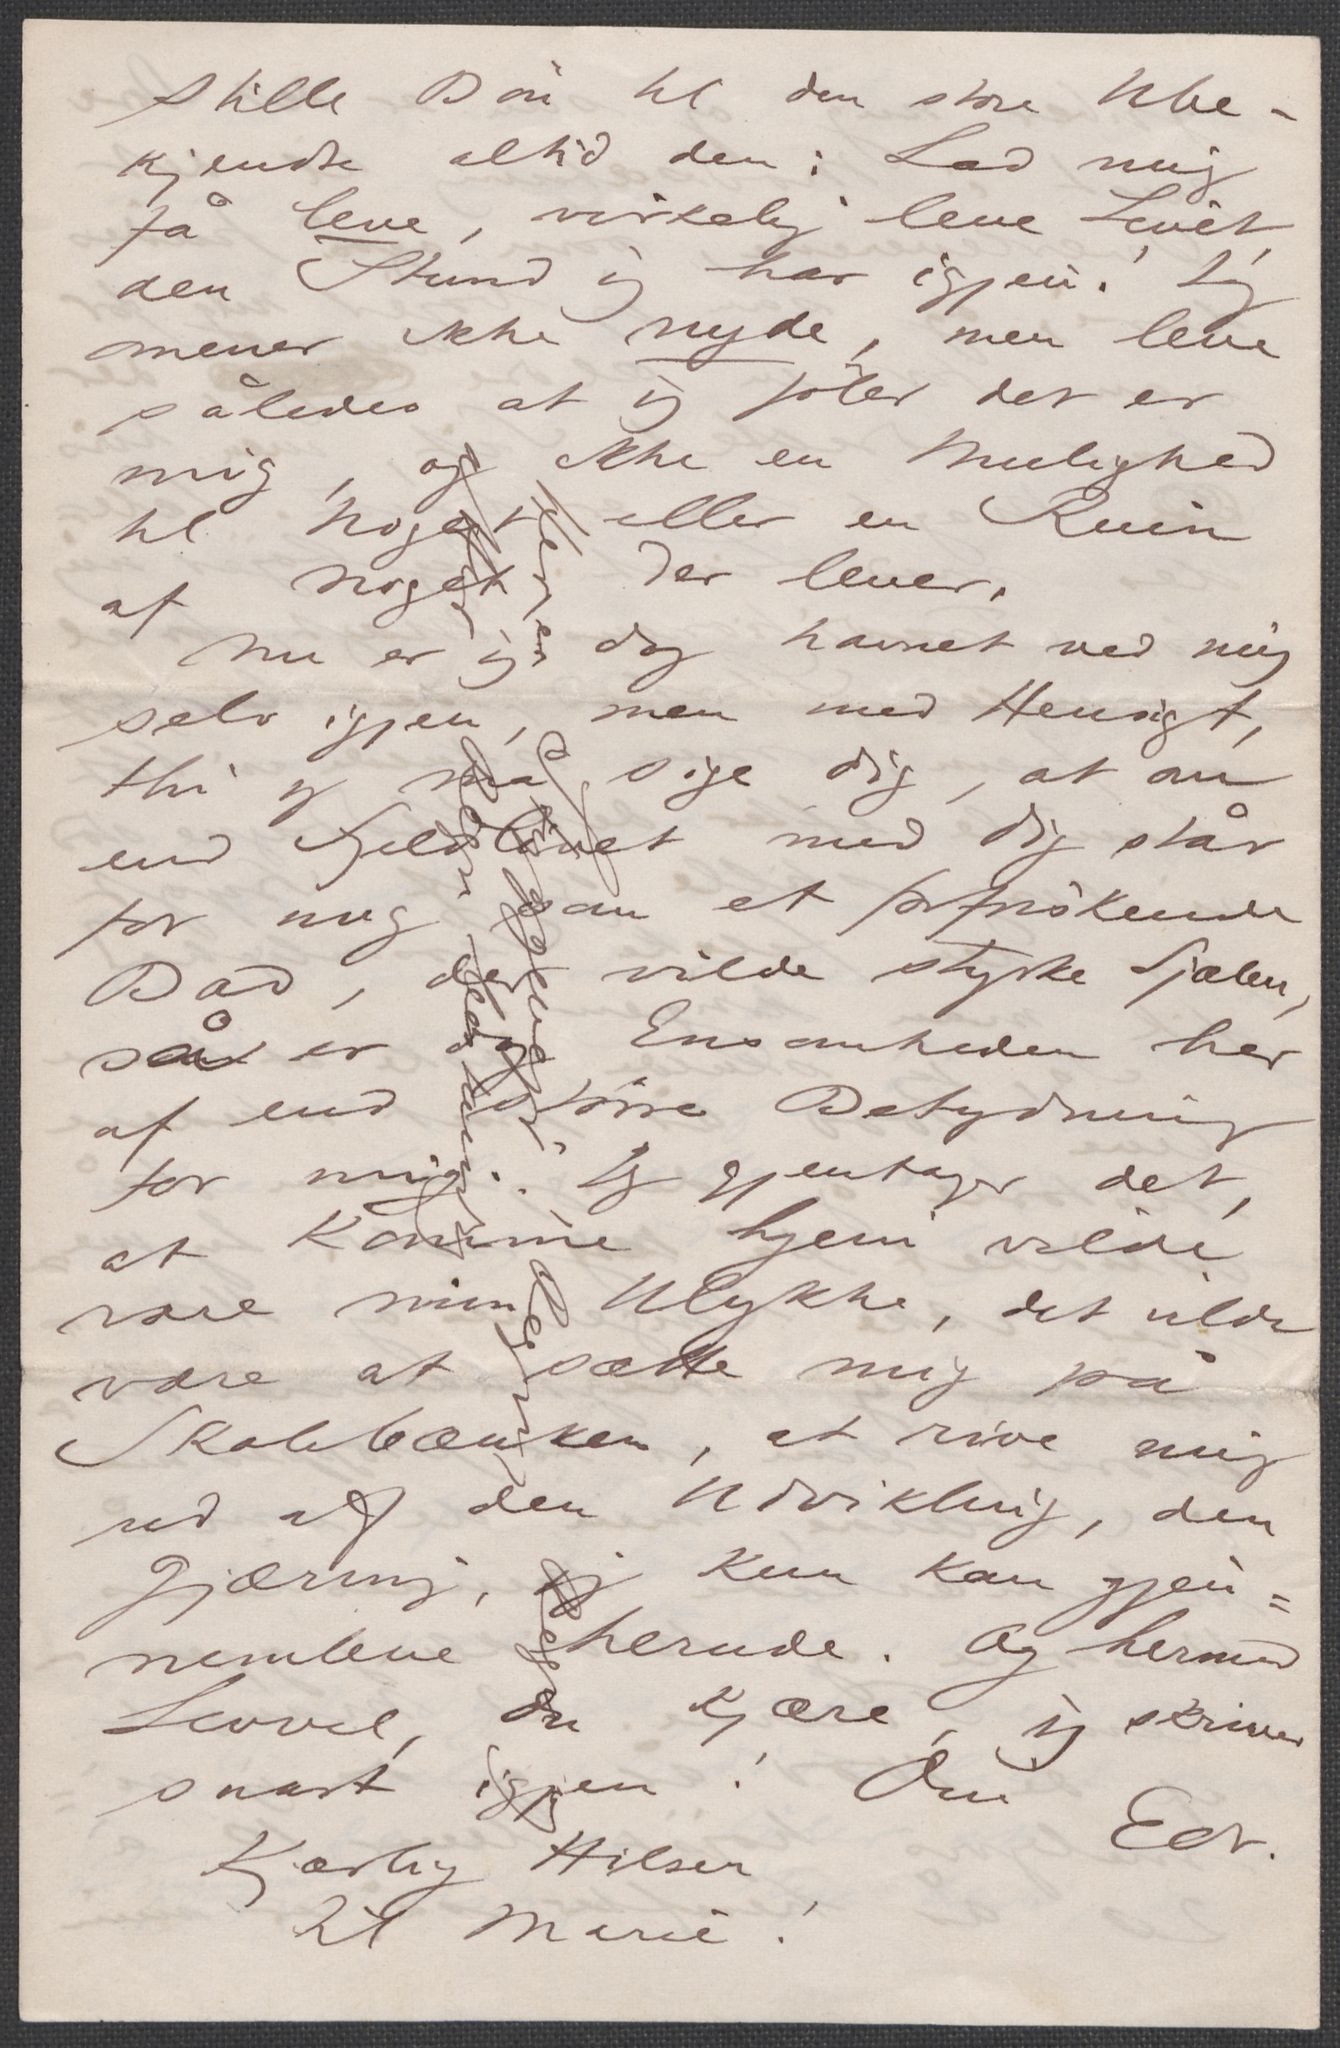 stille Bön til den store Ube-
kjendte altid den: Lad mig
få leve, virkelig leve Livet,
den Stund jeg har igjen! Jeg
mener ikke nyde, men leve
således at jeg föler det er
mig, og ikke en Mulighed
til Noget eller en Ruin
af Noget der lever.
Nu er jeg dog havnet ved mig
selv igjen, men med Hensigt,
thi jeg må sige dig, at om
end Fjeldlivet med dig står
for mig som et forfriskende
Bad, der vilde styrke Sjælen,
så er dog Ensomheden her
af end större Betydning
for mig. Jeg gjentager det,
at komme hjem vilde
være min Ulykke, det vilde
være at sætte mig på
Skolebænken, at rive mig
ud af den Udvikling, den
Gjæring, jeg kun kan gjen=
nemleve herude. Og hermed
Levvel, du Kjære, jeg skriver
snart igjen! Din
Edv.
Kjærlig Hilsen
til Marie!